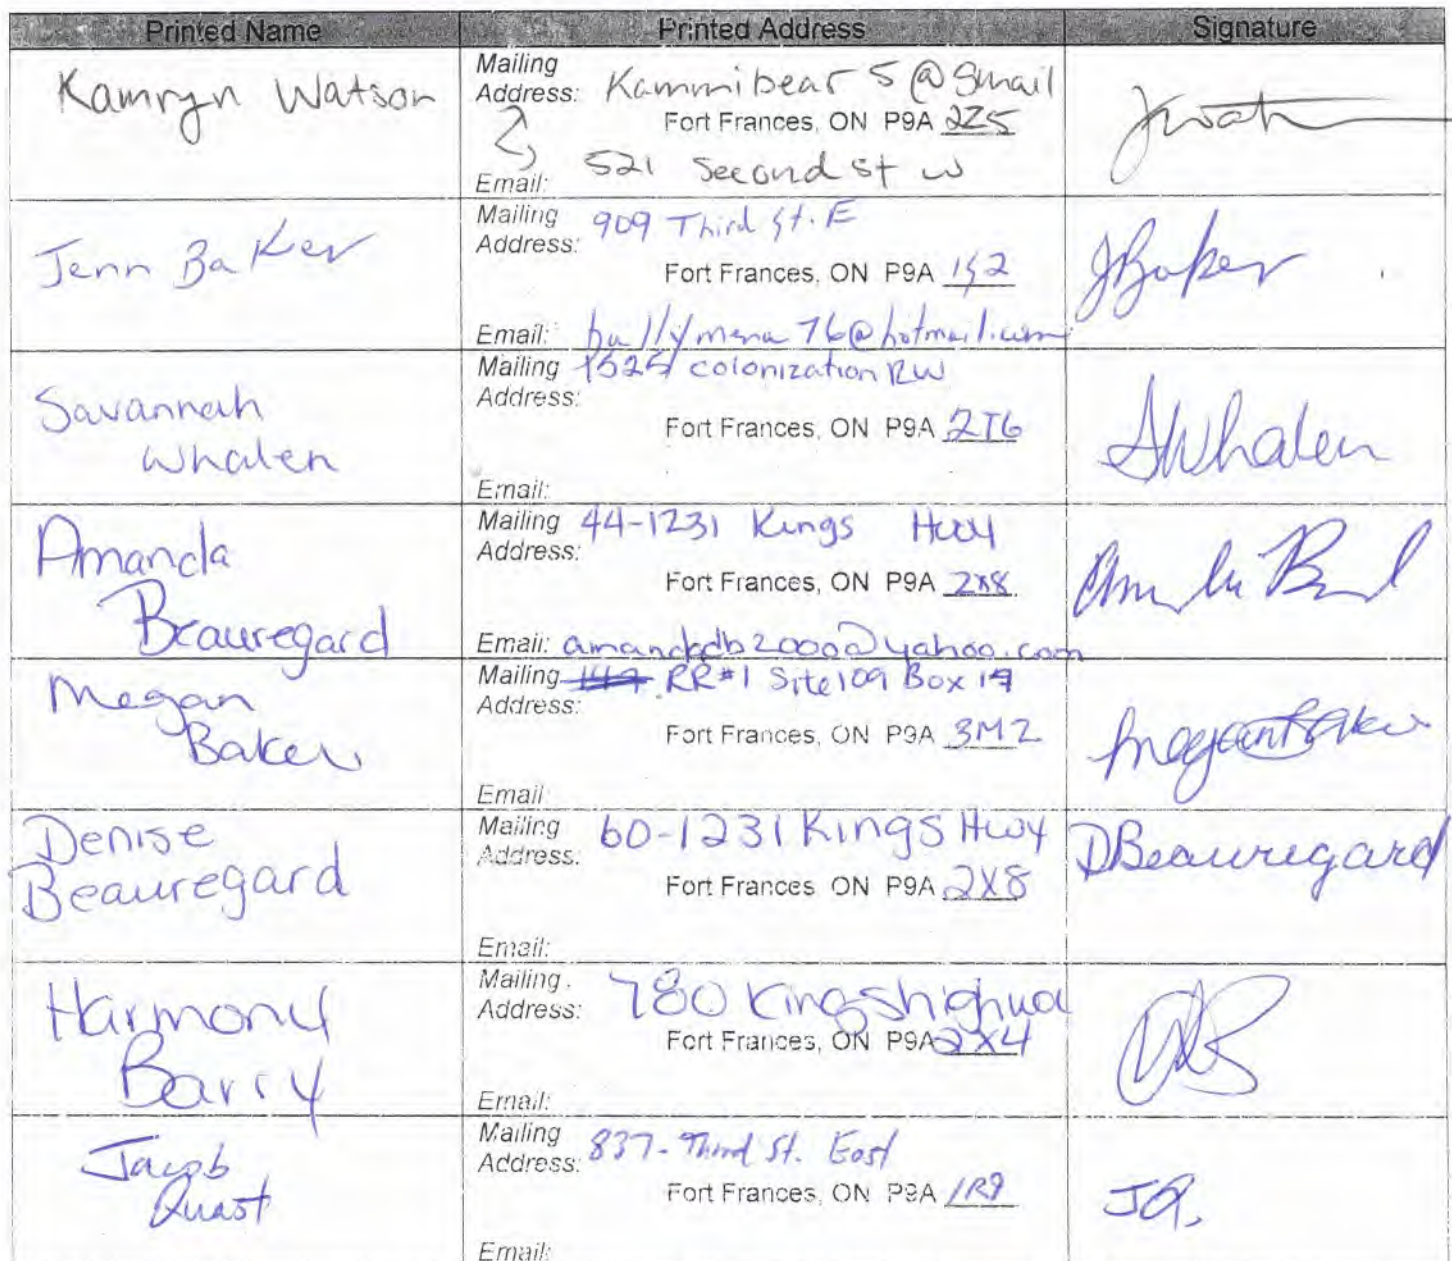 Printed Name Printed Address Signature
Kamryn Watson
Mailing
Address: Kammibear 5 @ gmail
Fort Frances, ON P9A 2Z5
Email: 521 Second St W
Jenn Baker
Mailing
Address: 909 Third St. E
Fort Frances, ON P9A 1S2
JBaker
Email: ballymena76@hotmail.com
Savannah
Whalen
Mailing 1525 colonization RW
Address:
Fort Frances, ON P9A 2T6
SWhalen
Email:
Amanda
Beauregard
Mailing 44-1231 Kings Hwy
Address:
Fort Frances, ON P9A 2X8
Email: amandadb2000@yahoo.com
Megan
Baker
Mailing RR#1 Site 109 Box 17
Address:
Fort Frances, ON P9A 3M2
Megan Baker
Email:
Denise
Beauregard
Mailing 60-1231 Kings Hwy
Address:
Fort Frances ON P9A 2X8
DBeauregard
Email:
Harmony
Barry
Mailing
Address: 780 Kingshighwa
Fort Frances, ON P9A 2X4
Email:
Jacob
Quast
Mailing
Address: 837- Third St. East
Fort Frances, ON P9A 1R9
JQ.
Email: